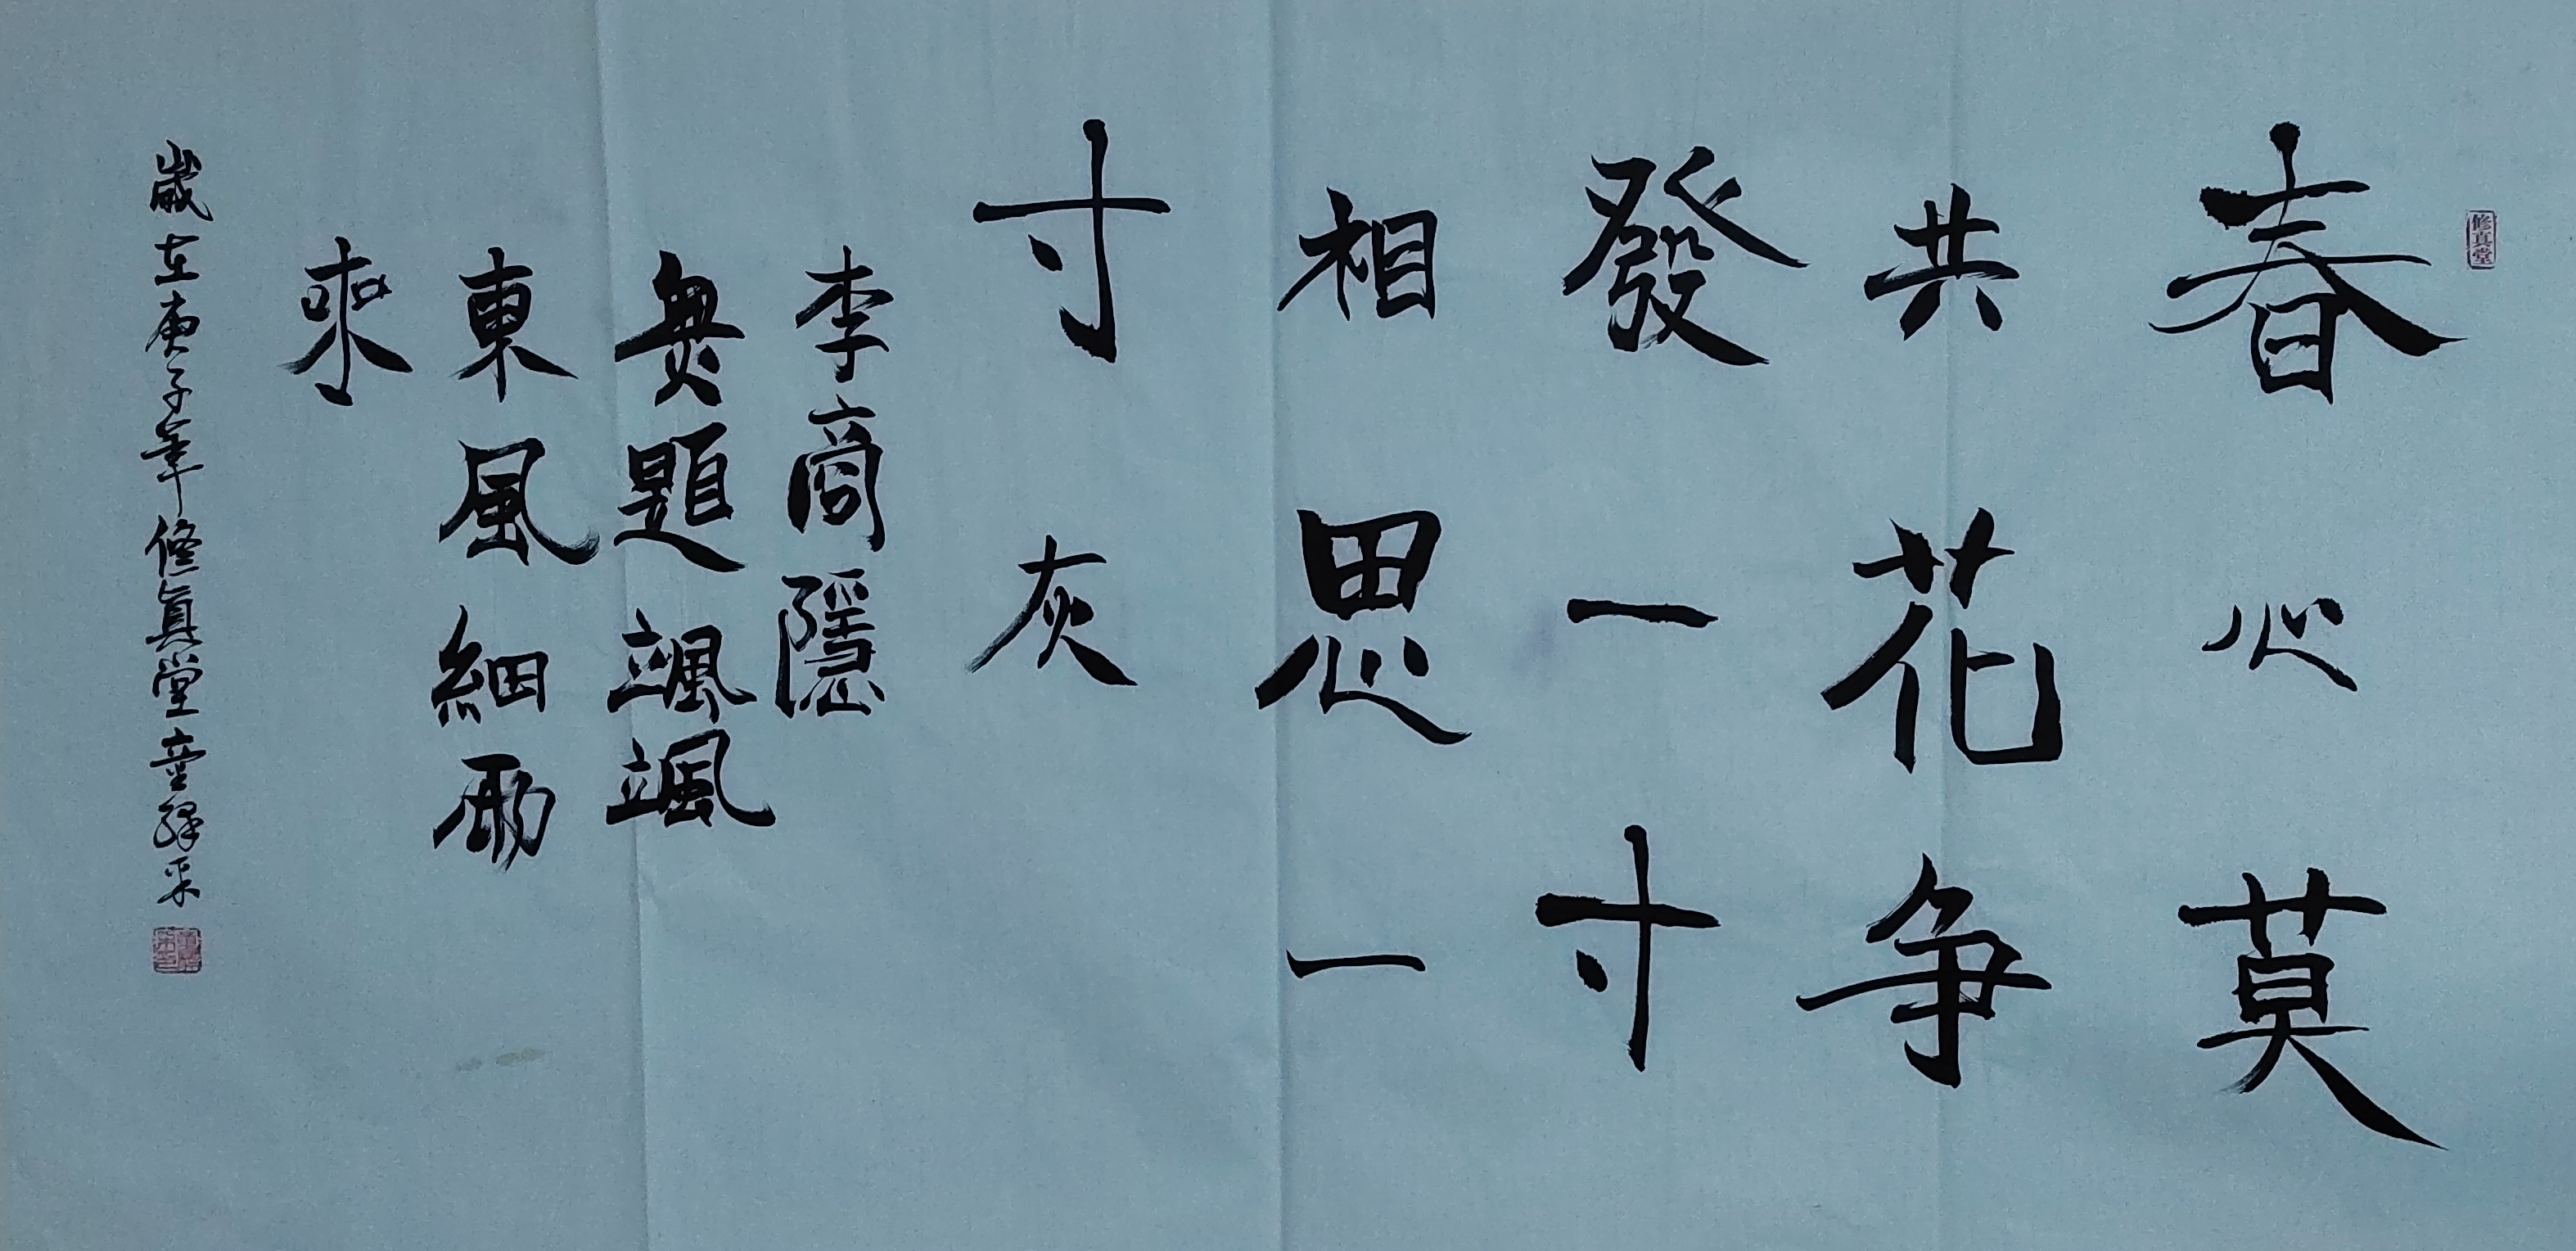 修真堂
春心莫
共花争
發一寸
相思一
寸灰
李商隱
無題颯颯
東風細雨
來
歲在庚子年修真堂童繹采